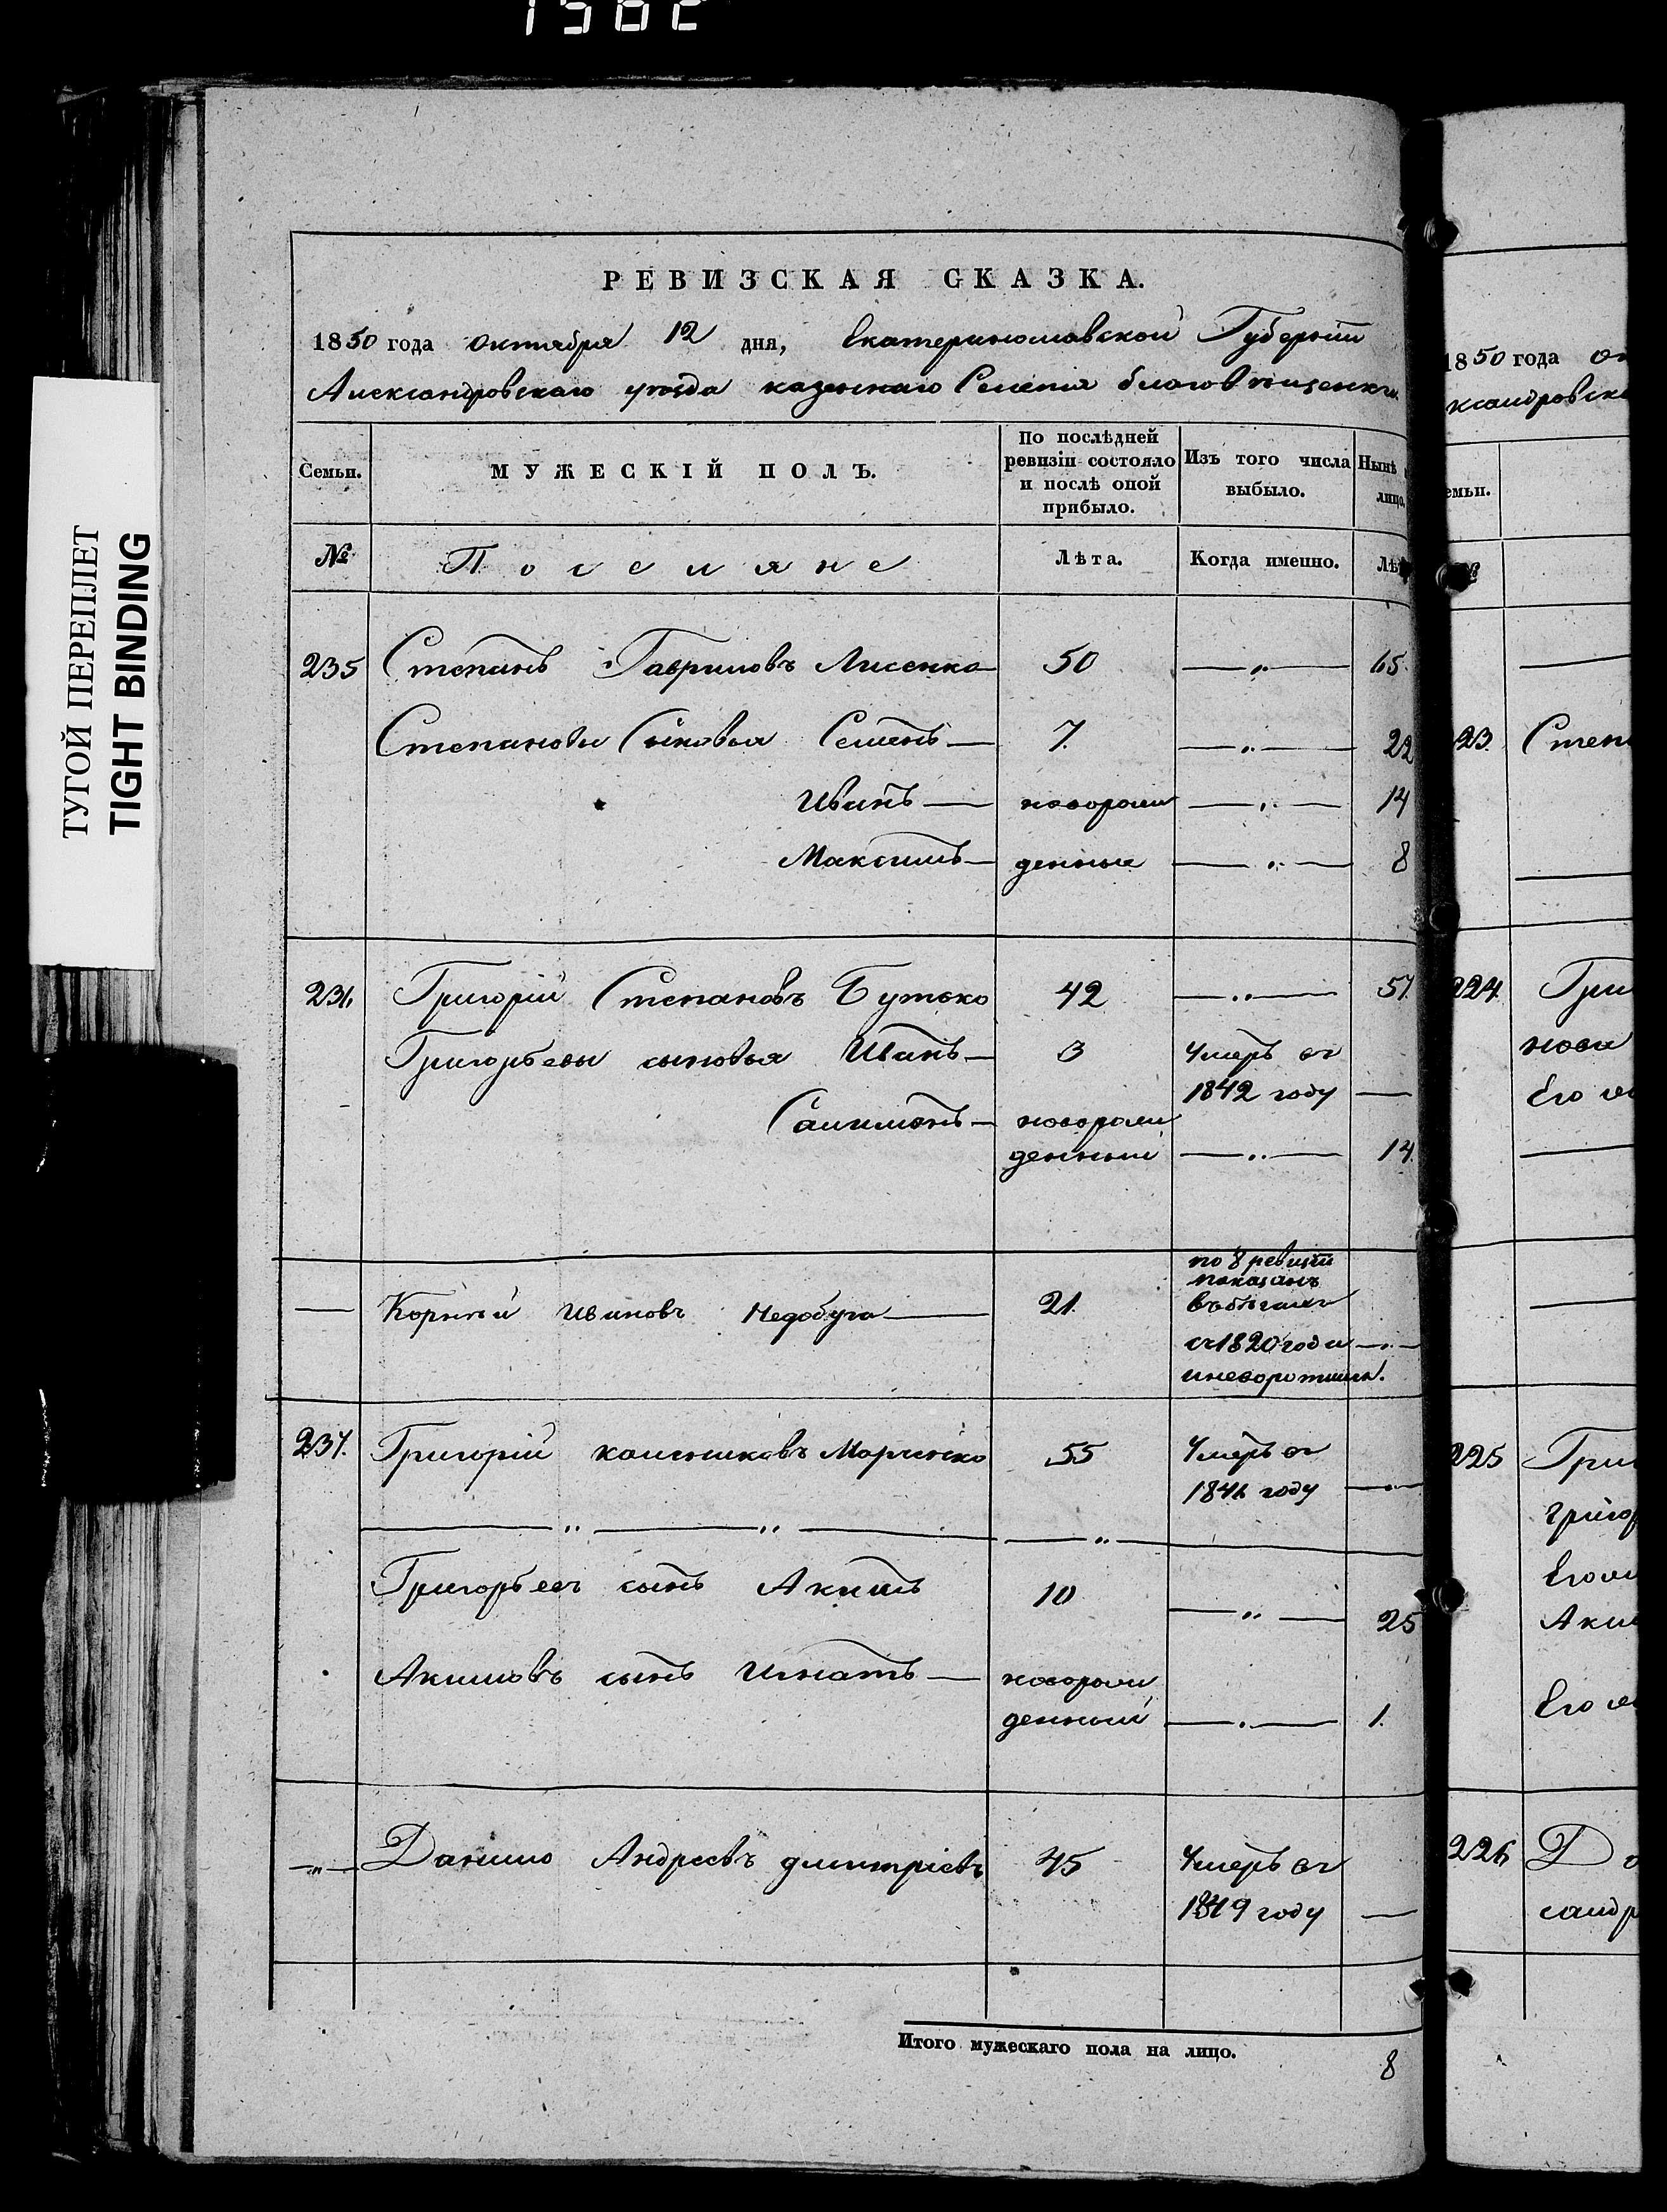 1582
ТУГОЙ ПЕРЕПЛЕТ
TIGHT BINDING
РЕВИЗСКАЯ СКАЗКА.
1850 года октября 12 дня, Екатеринославской Губернии
Александровскаго уѣзда казеннаго Селенія благовѣщенкаго
Семьи.
МУЖЕСКІЙ ПОЛЪ.
По послѣдней ревизіи состояло и послѣ оной прибыло.
Изъ того числа выбыло.
Нынѣ
лицо,
№
Поселяне
Лѣта.
Когда именно.
Лѣ
235 Степанъ Гавриловъ Лисенко 50 —„— 65
Степановы Сыновья Семенъ — 7. —„— 22
Иванъ — новорож —„— 14
Максимъ — денные —„— 8
236. Григорій Степановъ Бутько 42 —„— 57.
Григорьевы сыновья Иванъ — 3 Умеръ въ
1842 году —
новорож
денный —„— 14.
— Корній Ивановъ 21. по 8 ревизіи
показанъ
въ бѣгахъ
съ 1820 года —„—
237. Григорій 55 Умеръ въ
1846 году —„—
—„—„— —„—
Григорьевъ сынъ Акимъ 10 —„— 25
Акимовъ сынъ Игнатъ — новорож
денный —„— 1.
—„— Данило Андреевъ дмитріевъ 45 Умеръ въ
1849 году —
Итого мужескаго пола на лицо.
8
1850 года ок
ксандровска
емьи.
№
223. Степ
224. Гри
нова
Его
225 Гри
Григор
Его
Аки
Его
226 Д
сандр